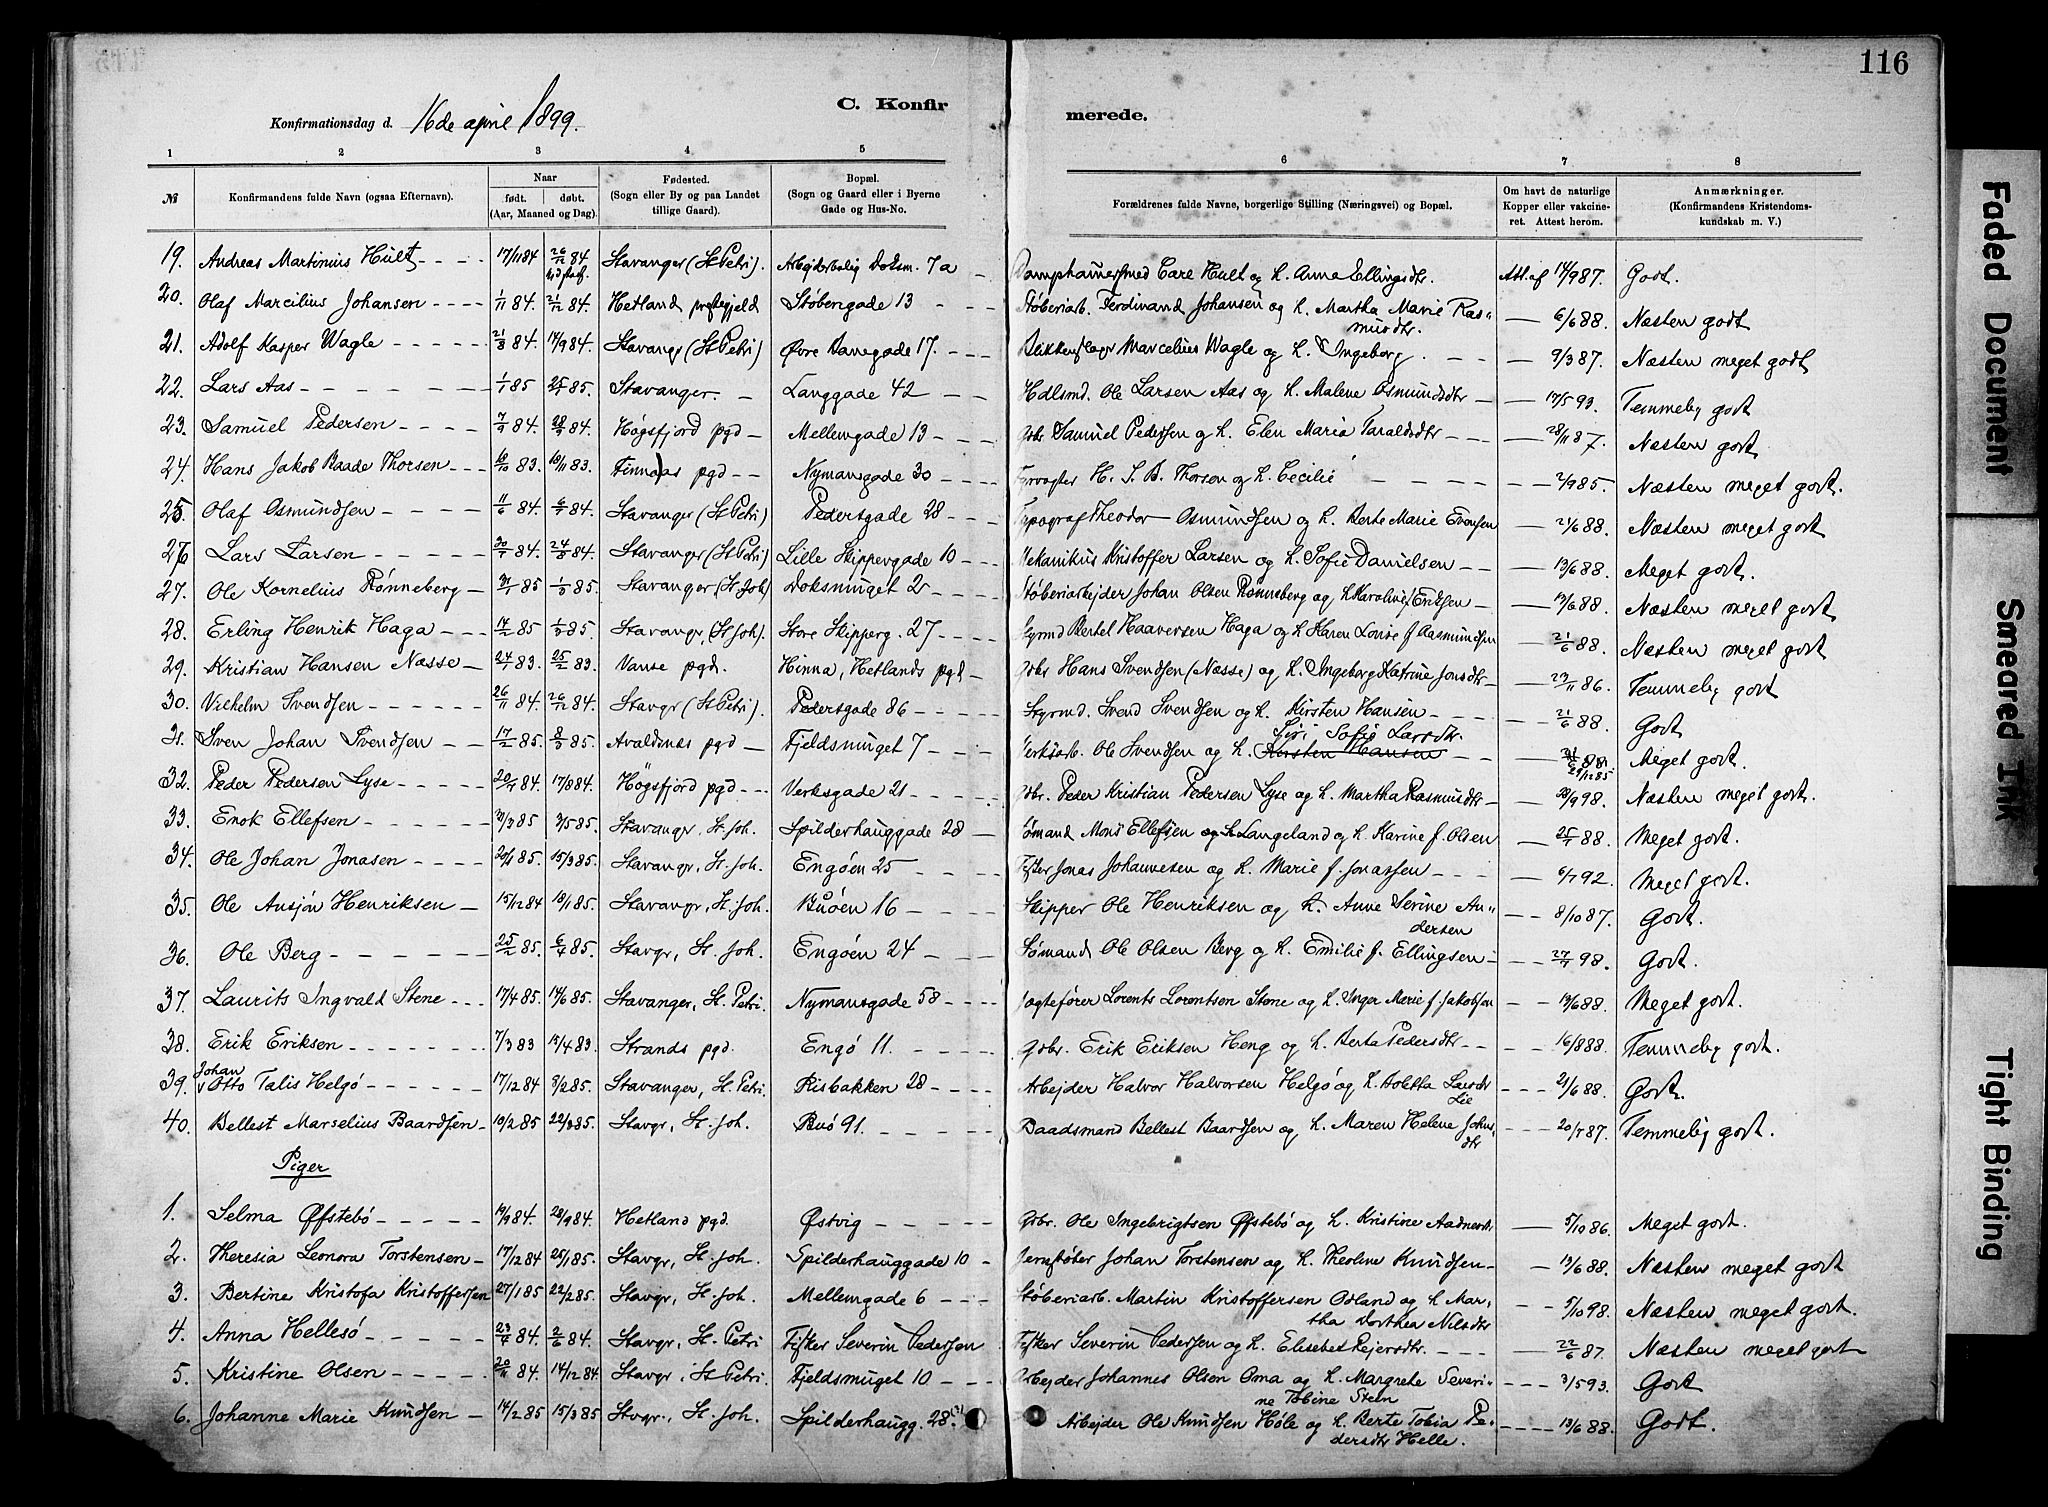 116
C. Konfirmerede.
Konfirmationsdag d. 16de april 1899.
1 2 3 4 5 6 7 8
№ Konfirmandens fulde Navn (ogsaa Efternavn). Naar født. døbt. (Aar, Maaned og Dag). Fødested. (Sogn eller By og paa Landet tillige Gaard). Bopæl. (Sogn og Gaard eller i Byerne Gade og Hus-No. Forældrenes fulde Navne, borgerlige Stilling (Næringsvei) og Bopæl. Om havt de naturlige Kopper eller vakcineret. Attest herom. Anmærkninger. (Konfirmandens Kristendomskundskab m. V.)
19. Andreas Martinius Hult 17/11 84 26/12 84 Stavanger (St Petri). Arbeiderbolig Doksm. 7a Carl Hult og h. Anna Ellingsdtr. Att. af 14/9 87. Godt.
20. Olaf Marcilius Johansen 1/11 84. 21/12 84. Hetland prestegjeld Støberigade 13 Støberiarb. Ferdinand Johansen og h. Martha Marie Ras-
musdtr. 6/6 88. Næsten godt
21. Adolf Kasper Wagle 21/8 84. 14/9 84. Stavangr (St Petri) Øvre Banegade 17. Blikkenslagr Marcelius Wagle og h. Ingeborg 9/3 87. Næsten meget godt
22. Lars Aas 1/1 85 85. Stavanger. Langgade 42 Hdlsmd. Ole Larsen Aas og h. Malene Osmundsdtr 17/5 93. Temmelig godt
23. Samuel Pedersen 84. 84. Høgsfjord pgd Mellemgade 13 Gbr Samuel Pedersen og h. Elen Maria Taraldsdtr 28/11 87. Næsten godt
24. Hans Jakob Baade Thorsen 83. 18/11 83. Finnaas pgd Nymansgade 30 Fyrvogter H. J. B. Thorsen og h. Cecilie 2/9 85. Næsten meget godt.
25. Olaf Osmundsen 11/6 84. 84. Stavanger (St Petri) Pedersgade 28 Typograf Theodor Osmundsen og h. Berte Marie Evensen 21/6 88. Næsten meget godt
26. Lars Larsen 30/7 84. 24/8 84. Stavanger (St Petri) Lille Skippergade 10 Mekanikus Kristoffer Larsen og h. Sofie Danielsen 13/6 88. Meget godt.
27. Ole Kornelius Rønneberg 31/1 85 1/3 85. Stavanger (St. Joh) Doksmuget 2 Støberiarbejder Johan Olsen Rønneberg og h. Karoline f. Eriksen 13/6 88. Næsten meget godt
28. Erling Henrik Haga 14/2 85 1/3 85. Stavangr, (St Joh). Store Skipperg. 27 Styrmd Bertel Haaversen Haga og h Karen Lovise f Aasmundsen 21/6 88. Næsten meget godt
29. Kristian Hansen Næsse 24/1 83. 25/2 83. Vanse pgd. Hinna, Hetlands pgd Gbr Hans Svendsen (Næsse) og h. Ingeborg Katrine Jonsdtr 23/11 86. Temmelig godt
30. Vilhelm Svendsen 26/11 84. 26/12 84. Stavgr (St Petri). Pedersgade 86 Styrmd. Svend Svendsen og h. Kirsten Hansen 21/6 88. Godt
31. Sven Johan Svendsen 17/2 85. 8/3 85. Avaldsnes pgd Fjeldsmuget 7 Verksarb. Ole Svendsen og h. Kirsten Hansen Siri Sofie Larsdtr. 88. 29/12 85 Meget godt.
32. Peder Pedersen Lyse 20/7 84. 17/8 84. Høgsfjord pgd Verksgade 21 Gbr. Peder Kristian Pedersen Lyse og h. Martha Rasmusdtr 20/9 98. Næsten meget godt.
33. Enok Ellefsen 31/3 85 3/5 85. Stavangr, St. Joh. Spilderhauggade 28 Sømand Mons Ellefsen Langeland og h. Karine f. Olsen 25/7 88. Meget godt.
34. Ole Johan Jonasen 20/1 85. 15/3 85. Stavangr, St. Joh. Engøen 25 Fisker Jonas Johannesen og h. Marie f. Jonassen 6/7 92. Meget godt.
35. Ole Ansjön Henriksen 15/12 84 18/1 85. Stavangr, St. Joh. Buøen 16 Skipper Ole Henriksen og h. Anne Serine An-
dersen 8/10 87. Godt.
36. Ole Berg 25/2 85. 6/4 85. Stavgr, St. Joh. Engøen 24 Sømand Ole Olsen Berg og h. Emilie f. Ellingsen 27/7 98. Godt.
37. Laurits Ingvald Stene 17/4 85. 14/6 85. Stavanger, St. Petri. Nymansgade 58 Jagtefører Lorents Lorentsen Stene og h. Inger Marie f. Jakobsen 13/6 88. Meget godt.
38. Erik Eriksen 7/3 83 15/4 83. Strands pgd. Engø 11. Gbr. Erik Eriksen Heng og h. Berta Pedersdtr 16/8 88. Temmelig godt.
39. Johan Otto Talis Helgø 17/12 84 8/2 85. Stavanger, St. Petri. Risbakken 28 Arbejder Halvor Halvorsen Helgø og h. Aoletta Larsdtr
Lie 21/6 88. Godt.
40. Bellest Marselius Baardsen 10/2 85 22/3 85. Stavgr, St. Joh. Buø 91. Baadsmand Bellest Baardsen og h. Maren Helene Johns-
dtr 20/7 87. Temmelig godt.
Piger
1. Selma Øfstebø 19/9 84. 28/9 84. Hetland pgd. Østvig Gbr. Ole Ingebrigtsen Øfstebø og h. Kristine Aadnesdtr. 5/10 86. Meget godt.
2. Theresia Leonora Torstensen 17/12 84 25/1 85. Stavgr, St. Joh. Spilderhauggade 10 Jernstøber Johan Torstensen og h. Theoline Knudsen 13/6 88. Næsten meget godt
3. Bertine Kristofa Kristoffersen 27/1 85 22/2 85. Stavgr, St. Joh. Mellemgade 6 Støberiarb. Martin Kristoffersen Ödland og h Mar-
tha Dorthea Nilsdtr 5/10 98. Næsten meget godt.
4. Anna Hellesø 84. 2/6 84. Stavgr, St. Petri Fisker Severin Pedersen Fisker Severin Pedersen og h. Elisabet Rejersdtr. 22/6 87. Næsten meget godt
5. Kristine Olsen 20/11 84. 14/12 84. Stavgr, St Petri. Fjeldsmuget 10 Arbejder Johannes Olsen Oma og h. Margrete Severi-
ne Tobine Steen 3/5 93. Godt
6. Johanne Marie Knudsen 14/2 85 15/3 85 Stvgr., St. Joh. Spilderhaugg. 28. Arbejder Ole Knudsen Høle og h. Berte Tobia Pe-
dersdtr Helle. 13/6 88. Godt.
Faded Document
Smeared Ink
Tight Binding